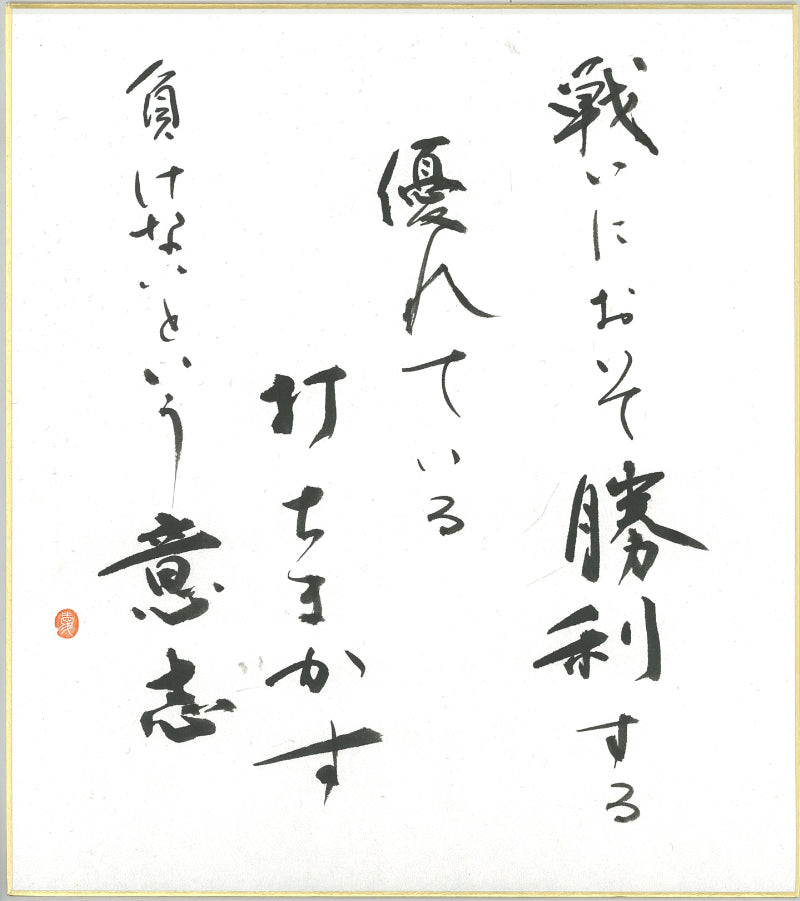 戦いにおいて勝利する
優れている
打ちまかす
負けないという意志